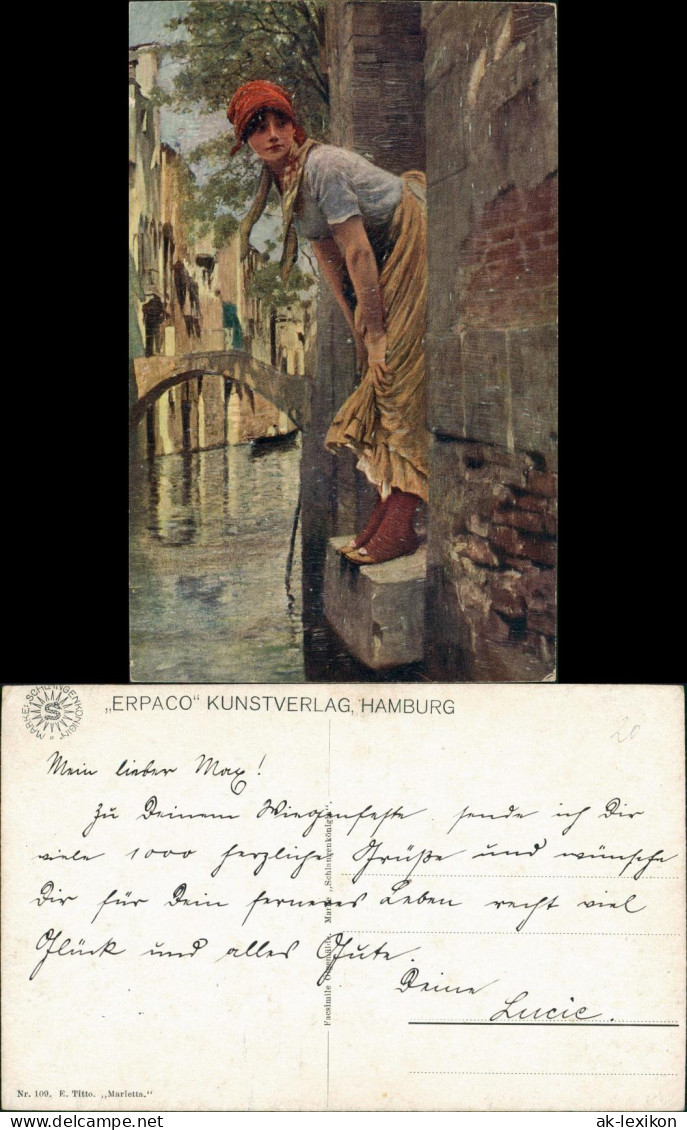 MARKE „SCHLANGENKÖNIGIN“
S
„ERPACO“ KUNSTVERLAG, HAMBURG
20
Mein lieber Max!
Zu Deinem Wiegenfeste sende ich Dir
viele 1000 herzliche Grüße und wünsche
Dir für Dein ferneres Leben recht viel
Glück und alles Gute.
Deine
Lucie.
Facsimile Marke „Schlangenkönigin“.
Nr. 109. E. Titto. „Marietta.“
delcampe.net
ak-lexikon